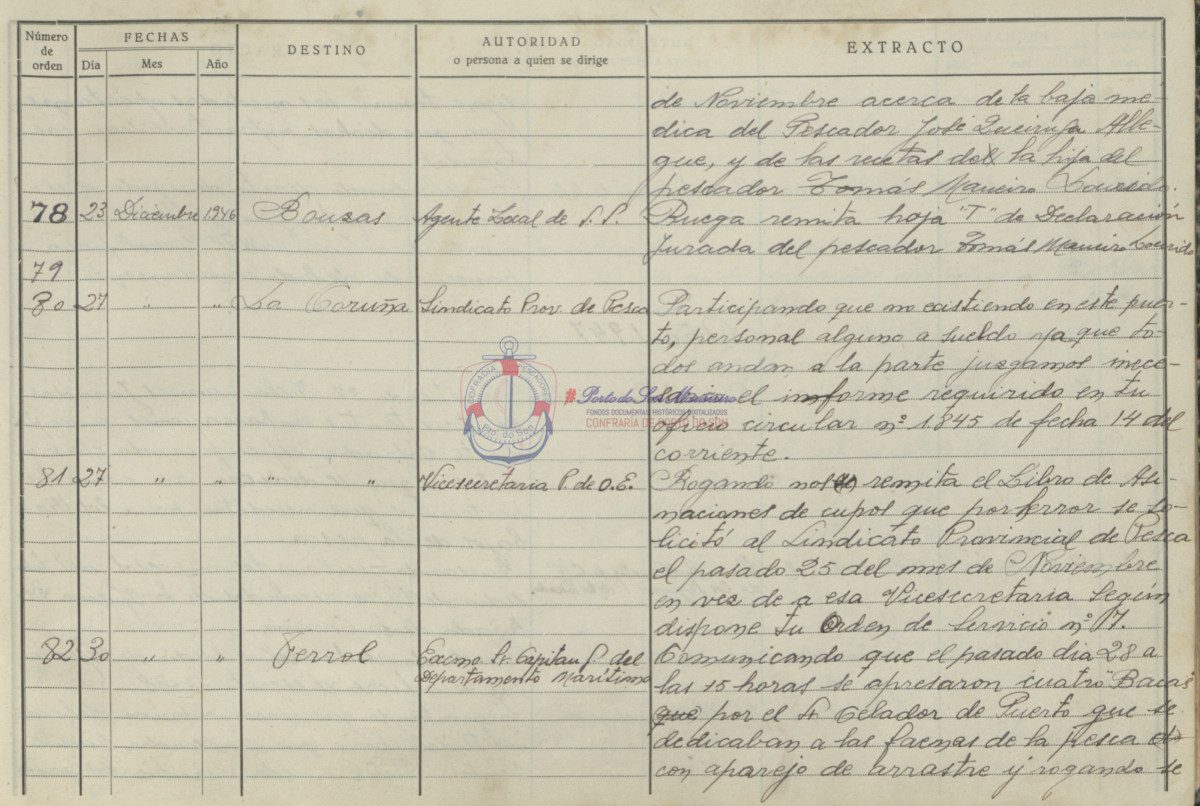 Número de orden
FECHAS
Día Mes Año
DESTINO
AUTORIDAD
o persona a quien se dirige
EXTRACTO
de Noviembre acerca de la baja mé-
dica del Pescador José Queiruga Alle-
gue, y de las recetas del la hija del
pescador Tomás Maneiro Lourido.
78 23 Diciembre 1946 Bouzas Agente Local de S.S. Ruega remita hoja "T" de Declaración
Jurada del pescador Tomás Maneiro Lourido
79
80 27 " " La Coruña Sindicato Prov. de Pesca Participando que no existiendo en este puer-
to, personal alguno a sueldo ya que to-
dos andan a la parte juzgamos inece-
sario el informe requirido en tu
oficio circular nº 1.845 de fecha 14 del
corriente.
81 27 " " " " Vicesecretaria P. de O.E. Rogando nos remita el Libro de Asi-
naciones de cupos que por error se so-
licitó al Sindicato Provincial de Pesca
el pasado 25 del mes de Noviembre
en vez de a esa Vicesecretaria Según
dispone tu Orden de Servicio nº 17.
82 30 " " Ferrol Excmo Sr. Capitan G. del
Departamento Marítimo
Comunicando que el pasado dia 28 a
las 15 horas se apresaron cuatro "Bacas"
que por el Sr Celador de Puerto que se
dedicaban a las faenas de la pesca
con aparejo de arrastre y rogando se
COFRADIA PESCADORES
Pto. do Son
#Porto do Son Mariñeiro
FONDOS DOCUMENTAIS HISTÓRICOS DIXITALIZADOS
CONFRARÍA DE PORTO DO SON